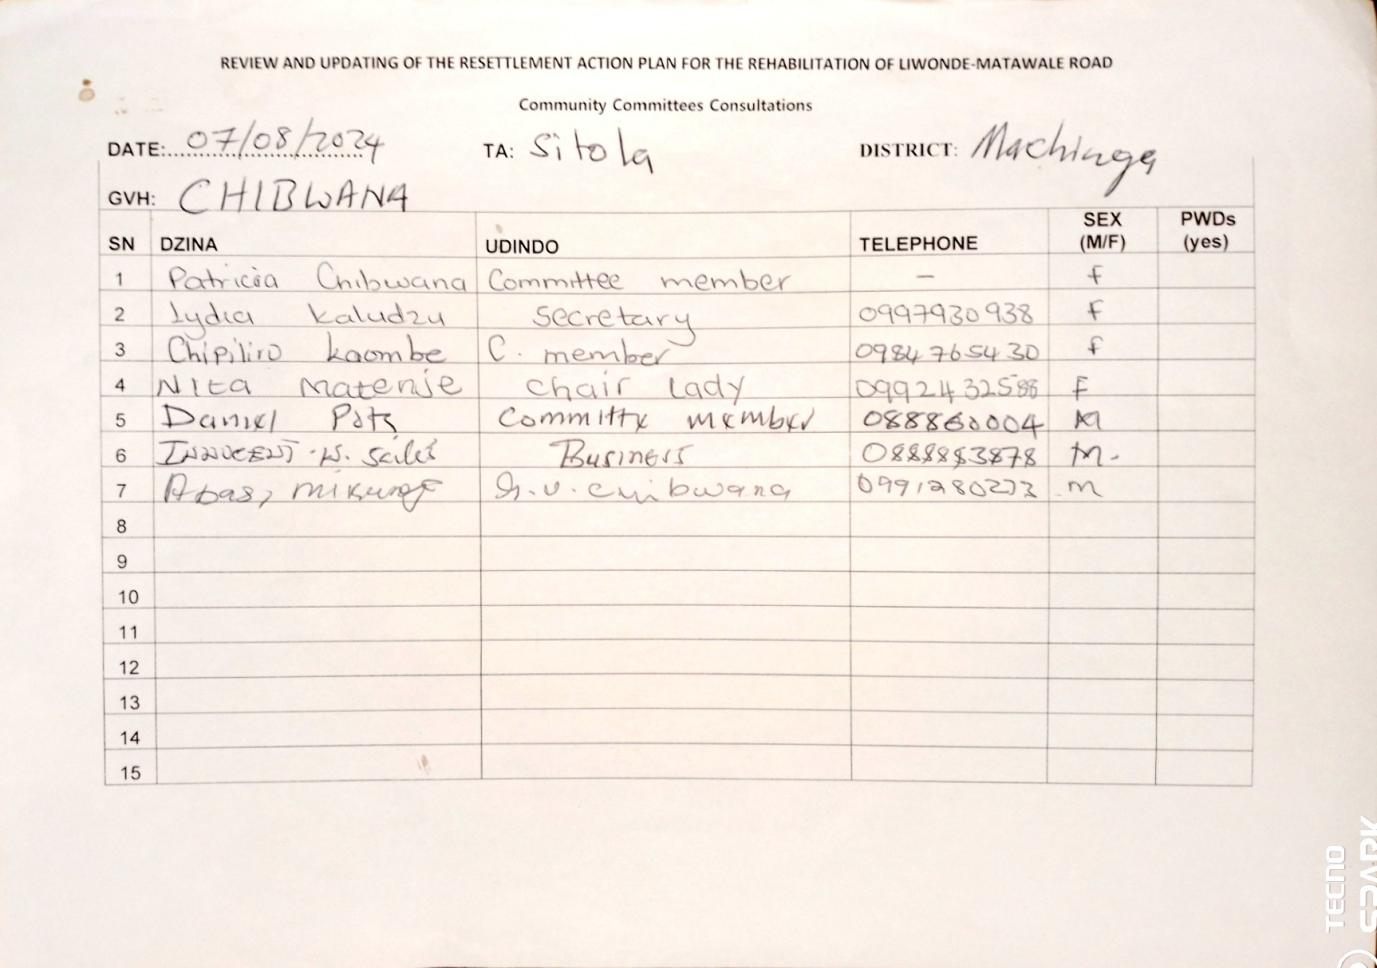 REVIEW AND UPDATING OF THE RESETTLEMENT ACTION PLAN FOR THE REHABILITATION OF LIWONDE-MATAWALE ROAD
Community Committees Consultations
DATE: 07/08/2024 TA: Sitola DISTRICT: Machinga
GVH: CHIBWANA
SN DZINA UDINDO TELEPHONE SEX (M/F) PWDs (yes)
1 Patricia Chibwana Committee member - f
2 Lydia kaludzu Secretary 0997930938 f
3 Chipiliro kaombe C. member 0984765430 f
4 Nita Matenje chair lady 0992432588 F
5 Daniel Committe member 088860004 M
6 INNOCENT .W. Business 0888883878 M.
7 Abas, G.V. Chibwana m
8
9
10
11
12
13
14
15
TECNO
SPARK